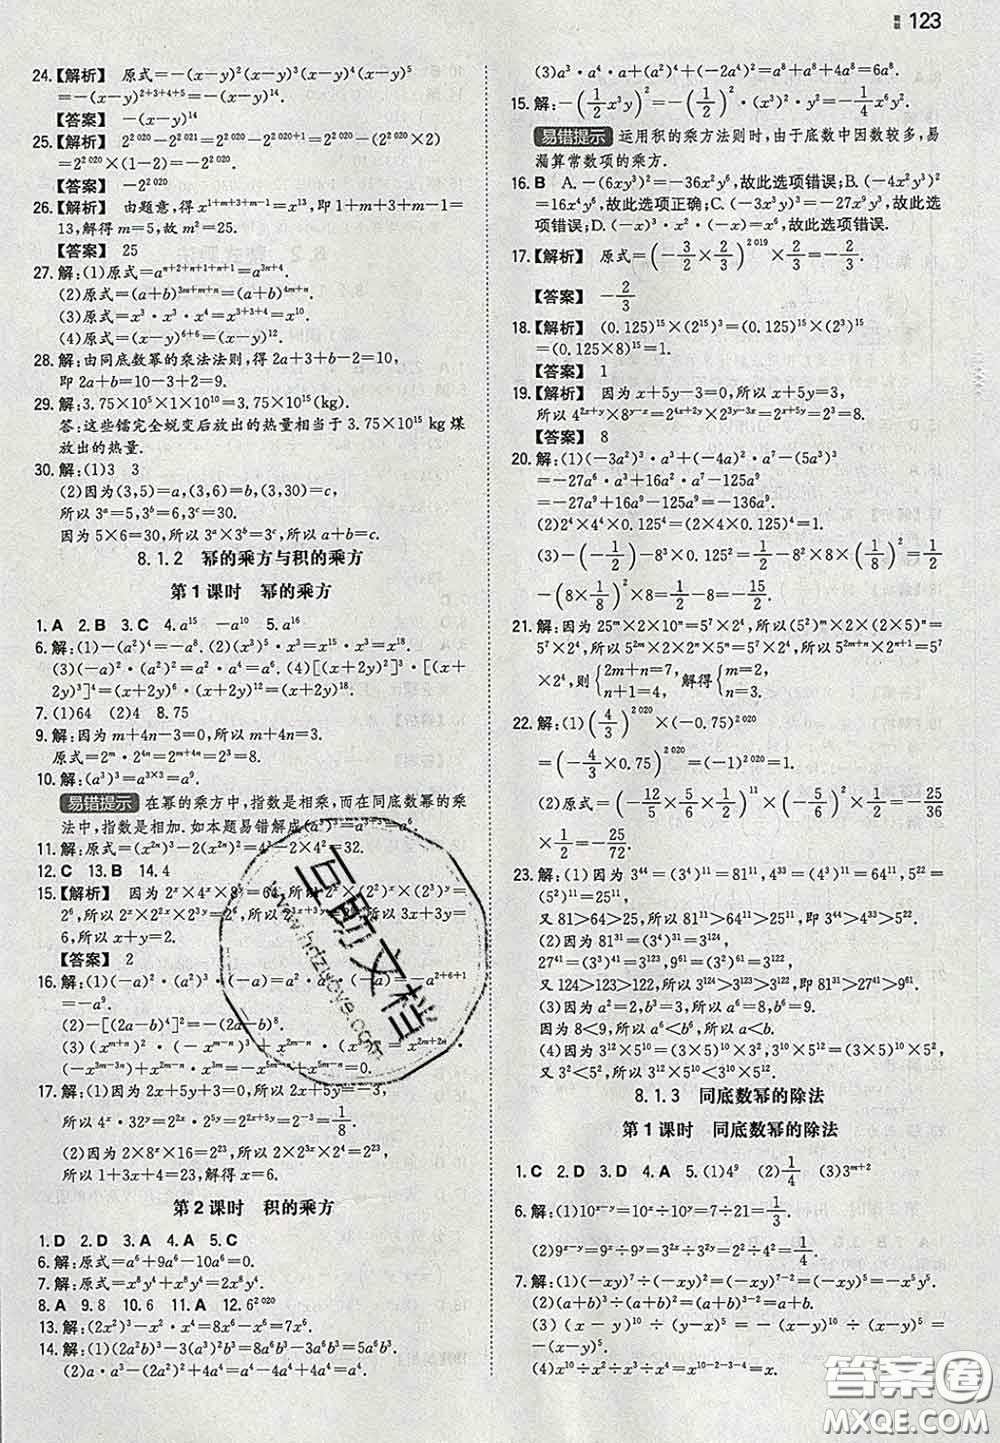 数版 123
24.【解析】 原式=-(x-y)²(x-y)³(x-y)⁴(x-y)⁵
=-(x-y)²⁺³⁺⁴⁺⁵=-(x-y)¹⁴.
【答案】 -(x-y)¹⁴
25.【解析】 2²⁰²⁰-2²⁰²¹=2²⁰²⁰-2²⁰²⁰⁺¹=2²⁰²⁰-(2²⁰²⁰×2)
=2²⁰²⁰×(1-2)=-2²⁰²⁰.
【答案】 -2²⁰²⁰
26.【解析】 由题意,得x^(1+m+3+m-1)=x¹³,即1+m+3+m-1=
13,解得m=5,故m²=25.
【答案】 25
27.解:(1)原式=a^(n+2+n+1+n+1)=a^(3n+4).
(2)原式=(a+b)^(3m+m+n)=(a+b)^(4m+n).
(3)原式=x³·x³·x⁴=x³⁺³⁺⁴=x¹⁰.
(4)原式=(x-y)⁶⁺⁶=(x-y)¹².
28.解:由同底数幂的乘法法则,得2a+3+b-2=10,
即2a+b=10-3+2=9.
29.解:3.75×10⁵×1×10¹⁰=3.75×10¹⁵(kg)
答:这些镭完全蜕变后放出的热量相当于3.75×10¹⁵ kg煤
放出的热量.
30.解:(1)3 3
(2)因为(3,5)=a,(3,6)=b,(3,30)=c,
所以3ᵃ=5,3ᵇ=6,3ᶜ=30.
因为5×6=30,所以3ᵃ×3ᵇ=3ᶜ,所以a+b=c.
8.1.2 幂的乘方与积的乘方
第1课时 幂的乘方
1.A 2.B 3.C 4.a¹⁵ -a¹⁰ 5.a¹⁶
6.解:(1)-(a²)⁴=-a⁸. (2)(x³)⁵·x³=x¹⁵·x³=x¹⁸.
(3)(-a²)·(a²)²=-a²·a⁴=-a⁶. (4)[(x+2y)²]³·[(x+
2y)³]⁴=(x+2y)⁶·(x+2y)¹²=(x+2y)¹⁸.
7.(1)64 (2)4 8.75
9.解:因为m+4n-3=0,所以m+4n=3.
原式=2ᵐ·2⁴ⁿ=2^(m+4n)=2³=8.
10.解:(a³)³=a³ˣ³=a⁹.
易错提示 在幂的乘方中,指数是相乘,而在同底数幂的乘
法中,指数是相加.如本题易错解成(a³)³=a³⁺³=a⁶.
11.解:原式=(x²ⁿ)³-2(x²ⁿ)²=4³-2×4²=32.
12.C 13.B 14.4
15.【解析】 因为2ˣ×4ˣ×8ʸ=64,所以2ˣ×2²ˣ×2³ʸ=
2⁶,所以2ˣ×2²ˣ×2³ʸ=2⁶,所以3x+3y=
6,所以x+y=2.
【答案】 2
16.解:(1)(-a)²·(-a²)³·(-a)=-a²·a⁶·(-a)=-a²⁺⁶⁺¹
=-a⁹.
(2)-[(2a-b)⁴]²=-(2a-b)⁸.
(3)(x^(m+n))²·(-x^(m-n))³·x^(2m+2n)·
(-x^(3m-3n))=-x^(5m-n).
17.解:(1)因为2x+5y+3=0,所以2x+5y=-3,
所以4ˣ·32ʸ=2²ˣ·2⁵ʸ=2^(2x+5y)=2⁻³=1/8.
(2)因为2×8ˣ×16=2²³,所以2×2³ˣ×2⁴=2²³,
所以1+3x+4=23,解得x=6.
第2课时 积的乘方
1.D 2.D 3.A 4.A 5.C
6.解:原式=a⁶+9a⁶-10a⁶=0.
7.解:原式=x⁸y⁴+x⁸y⁴=2x⁸y⁴.
8.A 9.8 10.6 11.A 12.6²⁰²⁰
13.解:(2x²)³-x²·x⁴=8x⁶-x⁶=7x⁶.
14.解:(1)(2a²b)³-3(a³)²b³=8a⁶b³-3a⁶b³=5a⁶b³.
(2)a·a³-(2a²)²+4a⁴=a⁴-4a⁴+4a⁴=a⁴.
(3)a³·a⁴·a+(a²)⁴+(-2a⁴)²=a⁸+a⁸+4a⁸=6a⁸.
15.解:-(1/2 x³y)²=-(1/2)²·(x³)²·y²=-1/4 x⁶y².
易错提示 运用积的乘方法则时,由于底数中因数较多,易
漏算常数项的乘方.
16.B A.-(6xy³)²=-36x²y⁶,故此选项错误;B.(-4x²y³)²
=16x⁴y⁶,故此选项正确;C.(-3x²y)³=-27x⁶y³,故此选
项错误;D.(-x)³·x²=-x⁵,故此选项错误.
17.【解析】 原式=(-3/2×2/3)²⁰¹⁹×2/3=-2/3.
【答案】 -2/3
18.【解析】 (0.125)¹⁵×(2¹⁵)³=(0.125)¹⁵×(2³)¹⁵
=(0.125×8)¹⁵=1.
【答案】 1
19.【解析】 因为x+5y-3=0,所以x+5y=3,
所以4^(2x+y)×8^(y-x)=2^(4x+2y)×2^(3y-3x)=2^(x+5y)=2³=8.
【答案】 8
20.解:(1)(-3a²)³·a³+(-4a)²·a⁷-(5a³)³
=-27a⁶·a³+16a²·a⁷-125a⁹
=-27a⁹+16a⁹-125a⁹=-136a⁹.
(2)2⁴×4⁴×0.125⁴=(2×4×0.125)⁴=1.
(3)-8²×(1/8)²×1/2=-8²×8×(1/8)²×1/2=
-(8×1/8)²×8×1/2=-1²×8×1/2=-4.
21.解:因为25ᵐ×2×10ⁿ=5⁷×2⁴,所以(5²)ᵐ×2×(2×5)ⁿ=
5⁷×2⁴,所以5²ᵐ×2×2ⁿ×5ⁿ=5⁷×2⁴,所以5^(2m+n)×2^(n+1)=5⁷
×2⁴,则{2m+n=7, n+1=4, 解得{m=2, n=3.
22.解:(1)(4/3)²⁰²⁰×(-0.75)²⁰²⁰
=[4/3×(-0.75)]²⁰²⁰=(-1)²⁰²⁰=1.
(2)原式=(-12/5×5/12)¹¹×(-5/6×6/5)⁷×(-25/36)
×1/2=-25/72.
23.解:(1)因为81¹¹=(3⁴)¹¹=3⁴⁴,所以3⁴⁴=81¹¹,
又81>64>25,所以81¹¹>64¹¹>25¹¹,即3⁴⁴>4³³>5²².
(2)因为81³¹=(3⁴)³¹=3¹²⁴,
27⁴¹=(3³)⁴¹=3¹²³,9⁶¹=(3²)⁶¹=3¹²²,
又124>123>122,所以3¹²⁴>3¹²³>3¹²²,即81³¹>27⁴¹>9⁶¹.
(3)因为a²=2,b³=3,所以a⁶=8,b⁶=9,
因为8<9,所以a⁶<b⁶,所以a<b.
(4)因为3¹²×5¹⁰=(3×5)¹⁰×3²,3¹⁰×5¹²=(3×5)¹⁰×5²,
3²<5²,所以3¹²×5¹⁰<3¹⁰×5¹².
8.1.3 同底数幂的除法
第1课时 同底数幂的除法
1.C 2.D 3.D 4.A 5.(1)4⁹ (2)1/4 (3)3^(m+2)
6.解:(1)10^(x-y)=10ˣ÷10ʸ=7÷21=1/3.
(2)9^(x-y)=9ˣ÷9ʸ=(3ˣ)²÷(3ʸ)²=2²÷4²=1/4.
7.解:(1)(-xy)⁷÷(-xy)²=(-xy)⁷⁻²=(-xy)⁵=-x⁵y⁵.
(2)(a+b)³÷(a+b)²=(a+b)³⁻²=a+b.
-(x-y)⁵.
(4)x¹⁰÷x²÷x³÷x⁴=x¹⁰⁻²⁻³⁻⁴=x.
互助文档
www.hdzuoye.com
答案圈
MXQE.COM